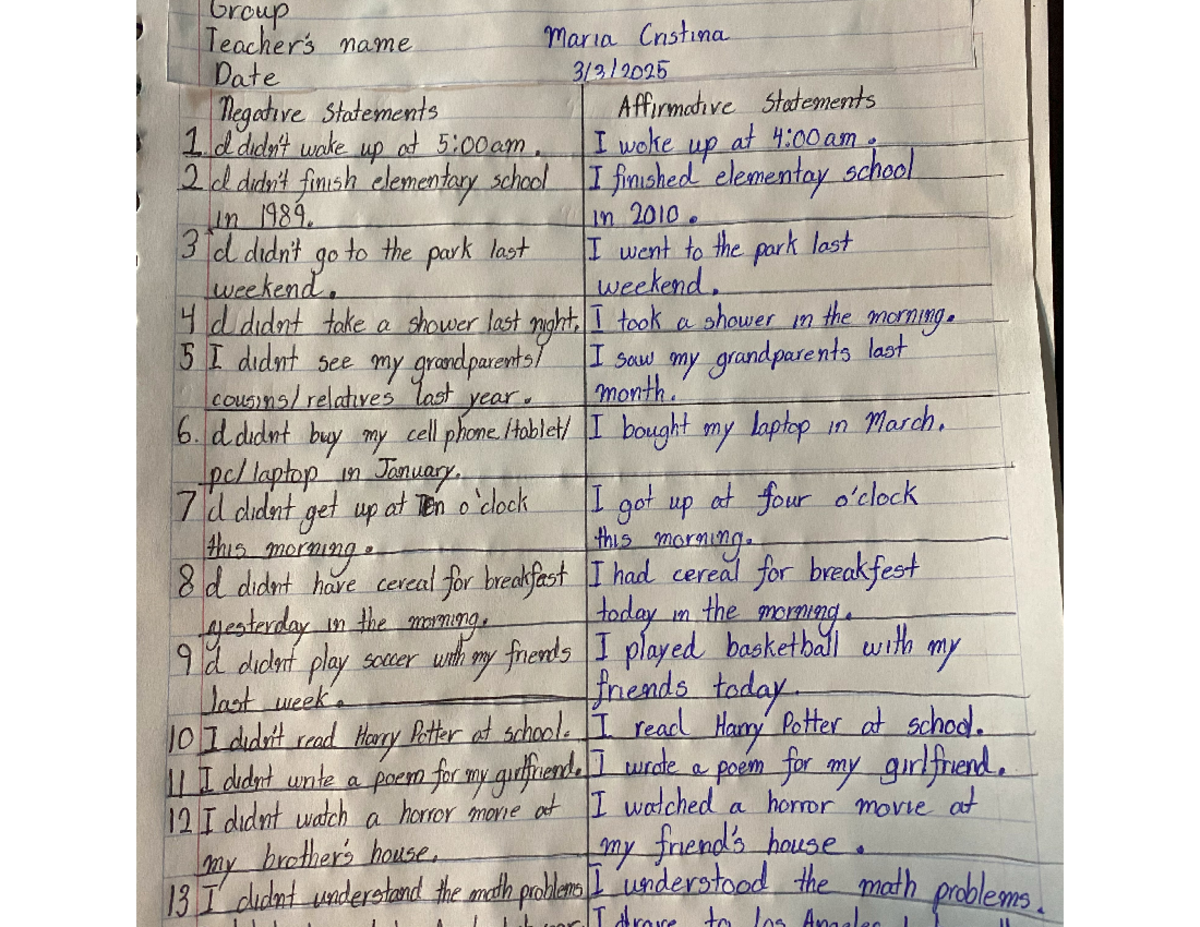 Group
Teacher's name Maria Cristina
Date 3/3/2025
Negative Statements Affirmative Statements
1. I didn't wake up at 5:00am. I woke up at 4:00am.
2 I didn't finish elementary school I finished elementay school
in 1989. in 2010.
3 I didn't go to the park last I went to the park last
weekend. weekend.
4 I didnt take a shower last night. I took a shower in the morning.
5 I didnt see my grandparents/ I saw my grandparents last
cousins/relatives last year. month.
6. I didnt buy my cell phone/tablet/ I bought my laptop in March.
pc/laptop in January.
7 I didnt get up at Ten o'clock I got up at four o'clock
this morning. this morning.
8 I didnt have cereal for breakfast I had cereal for breakfest
yesterday in the morning. today in the morning.
9 I didnt play soccer with my friends I played basketball with my
last week. friends today.
10 I didn't read Harry Potter at school. I read Harry Potter at school.
11 I didnt write a poem for my girlfriend. I wrote a poem for my girlfriend.
12 I didnt watch a horror movie at I watched a horror movie at
my brother's house. my friend's house.
13 I didnt understand the math problems I understood the math problems.
I drove to Los Angeles